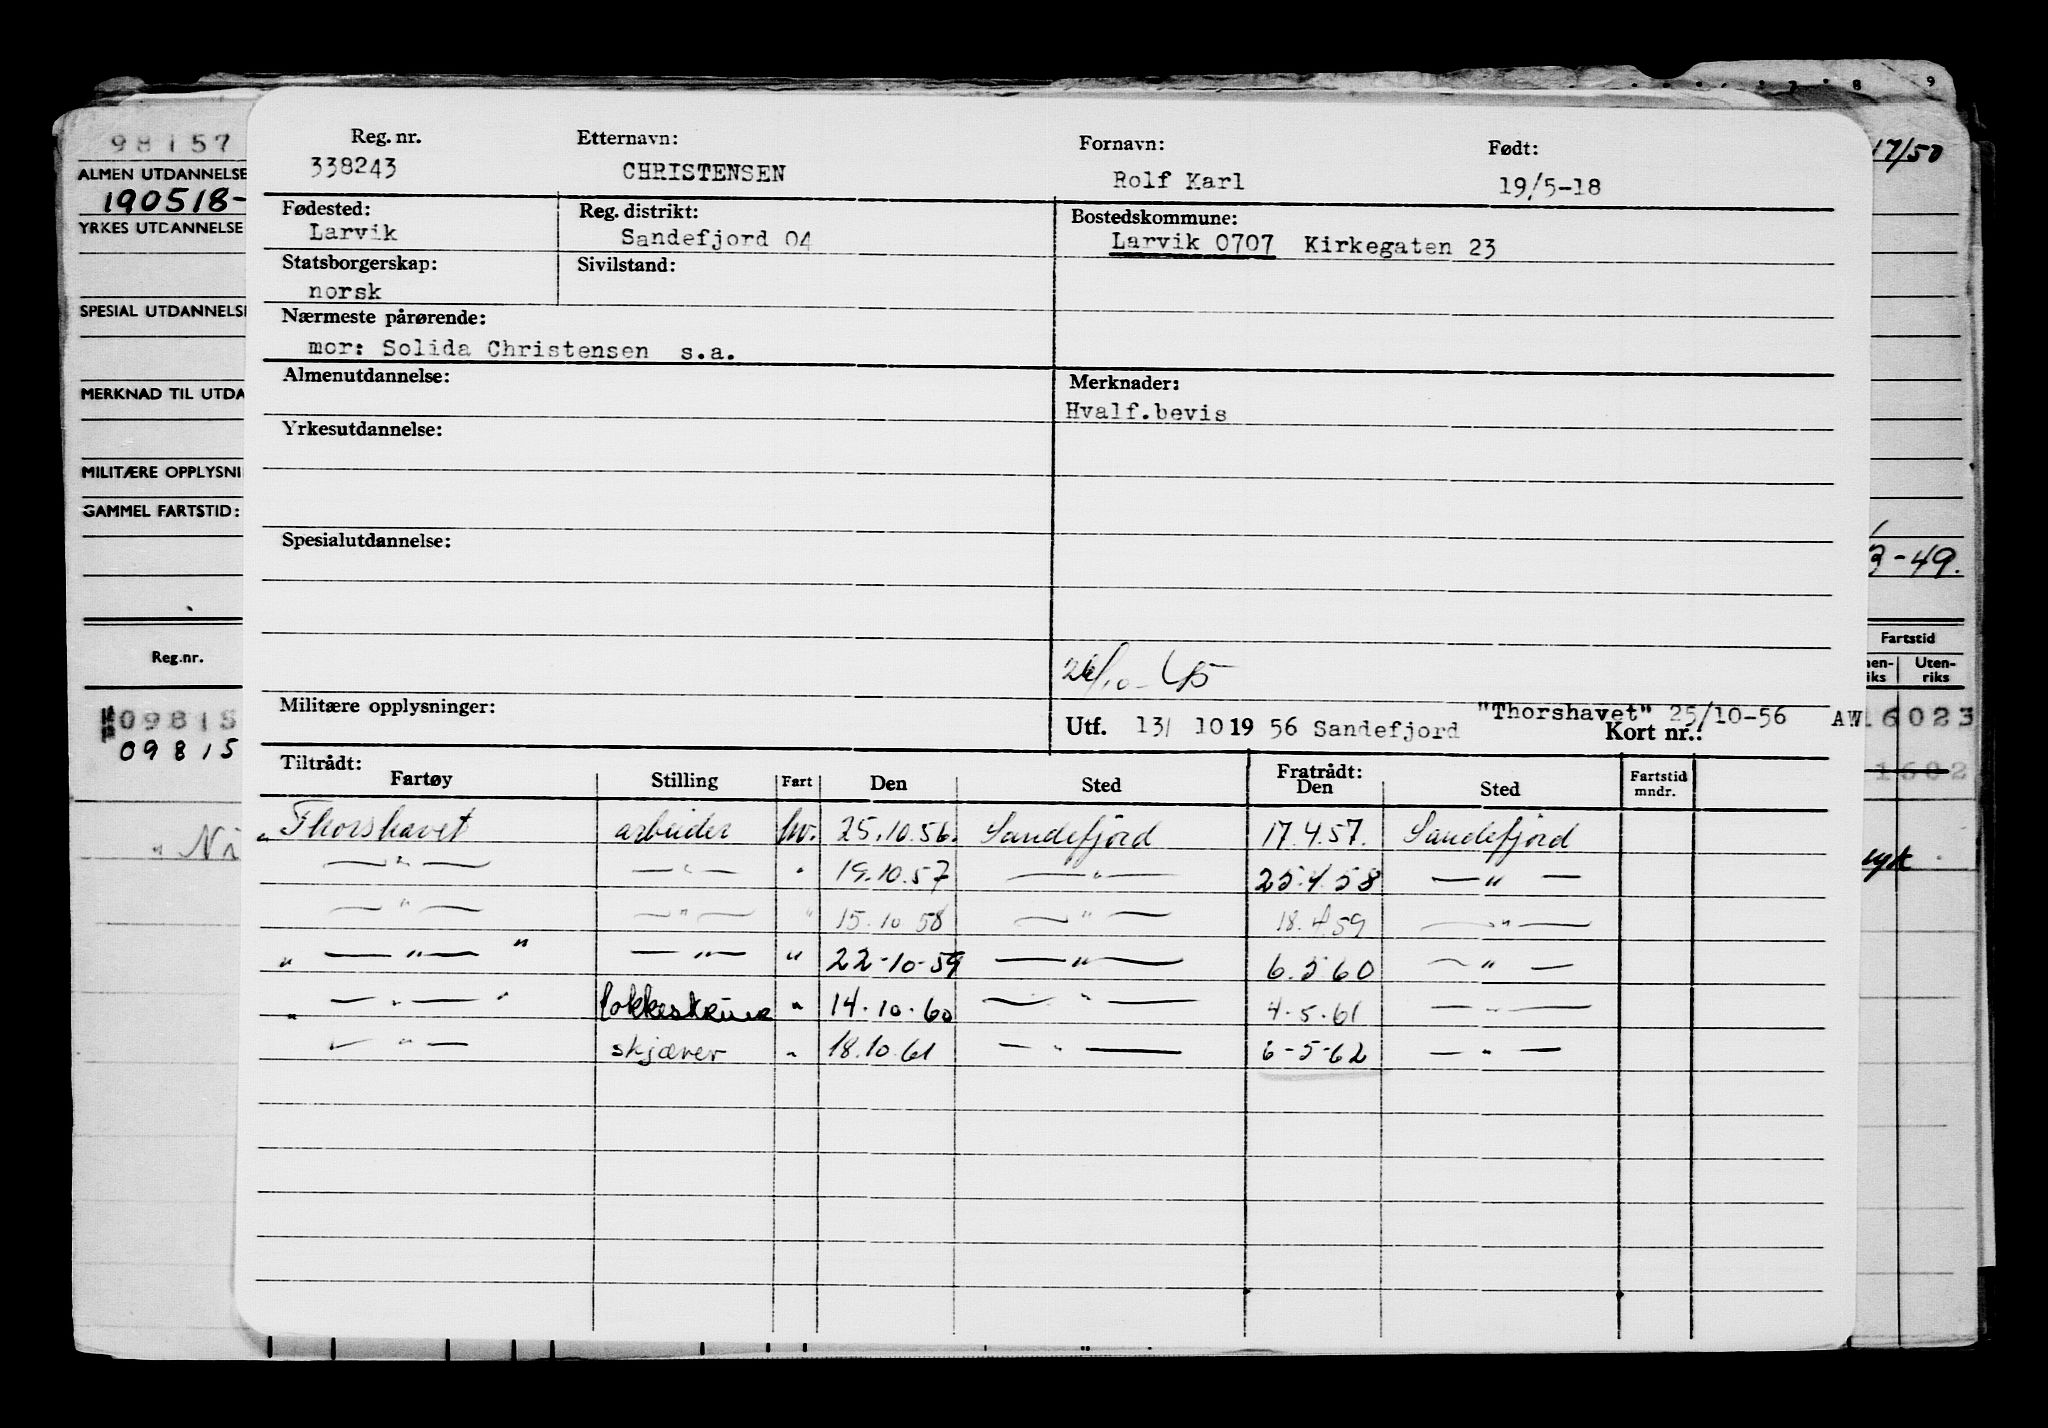 7 8 9
98157
ALMEN UTDANNELSE
190518-
YRKES UTDANNELSE
SPESIAL UTDANNELSE
MERKNAD TIL UTDA
MILITÆRE OPPLYSNI
GAMMEL FARTSTID:
Reg.nr.
09815
09815
Ni
Reg. nr. Etternavn: Fornavn: Født:
338243 CHRISTENSEN Rolf Karl 19/5-18
Fødested: Reg. distrikt: Bostedskommune:
Larvik Sandefjord 04 Larvik 0707 Kirkegaten 23
Statsborgerskap: Sivilstand:
norsk
Nærmeste pårørende:
mor: Solida Christensen s.a.
Almenutdannelse: Merknader:
Hvalf.bevis
Yrkesutdannelse:
Spesialutdannelse:
Militære opplysninger:
"Thorshavet" 25/10-56
Utf. 13/ 10 19 56 Sandefjord Kort nr.:
Tiltrådt: Fratrådt:
Fartøy Stilling Fart Den Sted Den Sted Fartstid mndr.
Thorshavet arbeider hv. 25.10.56. Sandefjord 17.4.57. Sandefjord
— " — — " — " 19.10.57 — " — 25.4.58 — " —
— " — — " — " 15.10 58 — " — 18.4 59 — " —
" — " — " — " — " 22-10-59 — " — 6.5 60 — " —
" — " — " " 14.10.60 — " — 4.5.61 — " —
— " — skjærer " 18.10.61 — " — 6-5-62 — " —
17/50
3-49.
Fartstid
nen- Uten-
iks riks
AW16023
1602